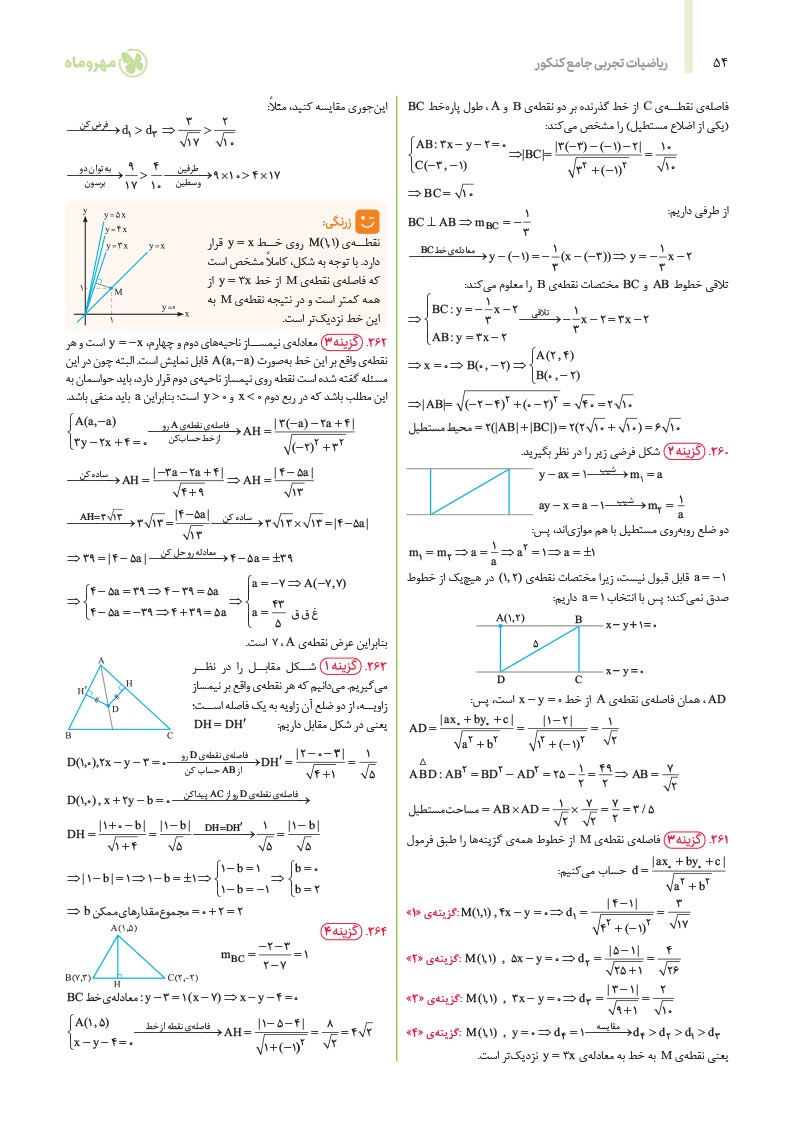 ۵۴
ریاضیات تجربی جامع کنکور
مهروماه
فاصله‌ی نقطه‌ی C از خط گذرنده بر دو نقطه‌ی B و A ، طول پاره‌خط BC
(یکی از اضلاع مستطیل) را مشخص می‌کند:
{AB: ۳x − y − ۲ = ۰ , C(−۳, −۱)} ⇒ |BC| = |۳(−۳) − (−۱) − ۲| / √(۳² + (−۱)²) = ۱۰/√۱۰
⇒ BC = √۱۰
از طرفی داریم:
BC ⊥ AB ⇒ m_BC = −۱/۳
معادله‌ی خط BC → y − (−۱) = −۱/۳ (x − (−۳)) ⇒ y = −۱/۳ x − ۲
تلاقی خطوط AB و BC مختصات نقطه‌ی B را معلوم می‌کند:
⇒ {BC: y = −۱/۳ x − ۲ , AB: y = ۳x − ۲} تلاقی → −۱/۳ x − ۲ = ۳x − ۲
⇒ x = ۰ ⇒ B(۰, −۲) ⇒ {A(۲, ۴) , B(۰, −۲)}
⇒ |AB| = √((−۲ − ۴)² + (۰ − ۲)²) = √۴۰ = ۲√۱۰
محیط مستطیل = ۲(|AB| + |BC|) = ۲(۲√۱۰ + √۱۰) = ۶√۱۰
۲۶۰. گزینه ۲ شکل فرضی زیر را در نظر بگیرید.
y − ax = ۱ شیب → m₁ = a
ay − x = a − ۱ شیب → m₂ = ۱/a
دو ضلع روبه‌روی مستطیل با هم موازی‌اند، پس:
m₁ = m₂ ⇒ a = ۱/a ⇒ a² = ۱ ⇒ a = ±۱
a = −۱ قابل قبول نیست، زیرا مختصات نقطه‌ی (۱, ۲) در هیچ‌یک از خطوط
صدق نمی‌کند؛ پس با انتخاب a = ۱ داریم:
A(۱,۲) B x − y + ۱ = ۰
۵
D C x − y = ۰
AD ، همان فاصله‌ی نقطه‌ی A از خط x − y = ۰ است، پس:
AD = |ax₀ + by₀ + c| / √(a² + b²) = |۱ − ۲| / √(۱² + (−۱)²) = ۱/√۲
ABD△: AB² = BD² − AD² = ۲۵ − ۱/۲ = ۴۹/۲ ⇒ AB = ۷/√۲
مساحت مستطیل = AB × AD = ۱/√۲ × ۷/√۲ = ۷/۲ = ۳/۵
۲۶۱. گزینه ۳ فاصله‌ی نقطه‌ی M از خطوط همه‌ی گزینه‌ها را طبق فرمول
d = |ax₀ + by₀ + c| / √(a² + b²) حساب می‌کنیم:
گزینه‌ی «۱»: M(۱,۱) , ۴x − y = ۰ ⇒ d₁ = |۴ − ۱| / √(۴² + (−۱)²) = ۳/√۱۷
گزینه‌ی «۲»: M(۱,۱) , ۵x − y = ۰ ⇒ d₂ = |۵ − ۱| / √(۲۵ + ۱) = ۴/√۲۶
گزینه‌ی «۳»: M(۱,۱) , ۳x − y = ۰ ⇒ d₃ = |۳ − ۱| / √(۹ + ۱) = ۲/√۱۰
گزینه‌ی «۴»: M(۱,۱) , y = ۰ ⇒ d₄ = ۱ مقایسه → d₄ > d₂ > d₁ > d₃
یعنی نقطه‌ی M به خط به معادله‌ی y = ۳x نزدیک‌تر است.
این‌جوری مقایسه کنید، مثلاً:
فرض کن → d₁ > d₃ ⇒ ۳/√۱۷ > ۲/√۱۰
به توان دو برسون → ۹/۱۷ > ۴/۱۰ طرفین وسطین → ۹ × ۱۰ > ۴ × ۱۷
زرنگی:
نقطه‌ی M(۱,۱) روی خط y = x قرار
دارد. با توجه به شکل، کاملاً مشخص است
که فاصله‌ی نقطه‌ی M از خط y = ۳x از
همه کمتر است و در نتیجه نقطه‌ی M به
این خط نزدیک‌تر است.
y
y = ۵x
y = ۴x
y = ۳x y = x
۱ M
y = ۰
x
۱
۲۶۲. گزینه ۳ معادله‌ی نیمساز ناحیه‌های دوم و چهارم، y = −x است و هر
نقطه‌ی واقع بر این خط به‌صورت A(a, −a) قابل نمایش است. البته چون در این
مسئله گفته شده است نقطه روی نیمساز ناحیه‌ی دوم قرار دارد، باید حواسمان به
این مطلب باشد که در ربع دوم x < ۰ و y > ۰ است؛ بنابراین a باید منفی باشد.
{A(a, −a) , ۳y − ۲x + ۴ = ۰} فاصله‌ی نقطه‌ی A رو از خط حساب کن → AH = |۳(−a) − ۲a + ۴| / √((−۲)² + ۳²)
ساده کن → AH = |−۳a − ۲a + ۴| / √(۴ + ۹) ⇒ AH = |۴ − ۵a| / √۱۳
AH=۳√۱۳ → ۳√۱۳ = |۴ − ۵a| / √۱۳ ساده کن → ۳√۱۳ × √۱۳ = |۴ − ۵a|
⇒ ۳۹ = |۴ − ۵a| معادله رو حل کن → ۴ − ۵a = ±۳۹
⇒ {۴ − ۵a = ۳۹ ⇒ ۴ − ۳۹ = ۵a , ۴ − ۵a = −۳۹ ⇒ ۴ + ۳۹ = ۵a} ⇒ {a = −۷ ⇒ A(−۷, ۷) , a = ۴۳/۵ غ ق ق}
بنابراین عرض نقطه‌ی A ، ۷ است.
۲۶۳. گزینه ۱ شکل مقابل را در نظر
می‌گیریم. می‌دانیم که هر نقطه‌ی واقع بر نیمساز
زاویه، از دو ضلع آن زاویه به یک فاصله است؛
یعنی در شکل مقابل داریم: DH = DH′
A
H′ H
D
B C
D(۱,۰), ۲x − y − ۳ = ۰ فاصله‌ی نقطه‌ی D رو از AB حساب کن → DH′ = |۲ − ۰ − ۳| / √(۴ + ۱) = ۱/√۵
D(۱,۰) , x + ۲y − b = ۰ فاصله‌ی نقطه‌ی D رو از AC پیدا کن →
DH = |۱ + ۰ − b| / √(۱ + ۴) = |۱ − b| / √۵ DH=DH′ → ۱/√۵ = |۱ − b| / √۵
⇒ |۱ − b| = ۱ ⇒ ۱ − b = ±۱ ⇒ {۱ − b = ۱ , ۱ − b = −۱} ⇒ {b = ۰ , b = ۲}
⇒ مجموع مقدارهای ممکن b = ۰ + ۲ = ۲
۲۶۴. گزینه ۴
A(۱,۵)
B(۷,۳) H C(۲,−۲)
m_BC = (−۲ − ۳)/(۲ − ۷) = ۱
معادله‌ی خط BC : y − ۳ = ۱(x − ۷) ⇒ x − y − ۴ = ۰
{A(۱, ۵) , x − y − ۴ = ۰} فاصله‌ی نقطه از خط → AH = |۱ − ۵ − ۴| / √(۱ + (−۱)²) = ۸/√۲ = ۴√۲